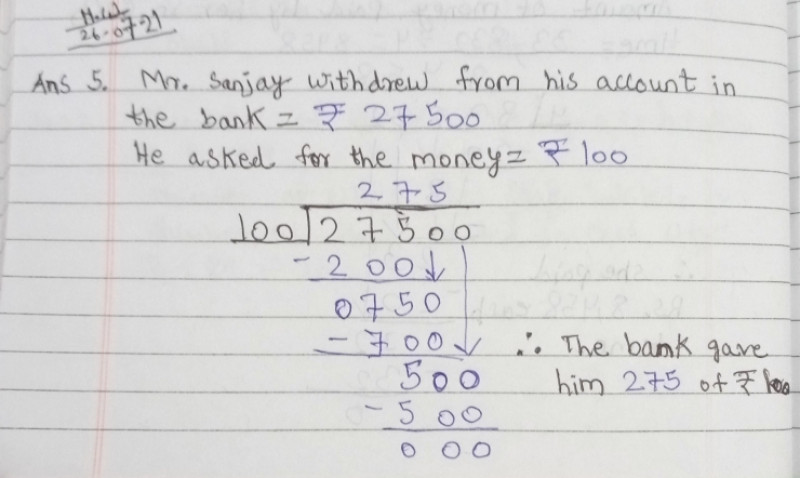 H.W
26-07-21
Ans 5. Mr. Sanjay withdrew from his account in
the bank = ₹ 27500
He asked for the money = ₹ 100
275
100)27500
- 200↓
0750
- 700↓
500
- 500
000
∴ The bank gave
him 275 of ₹ 100